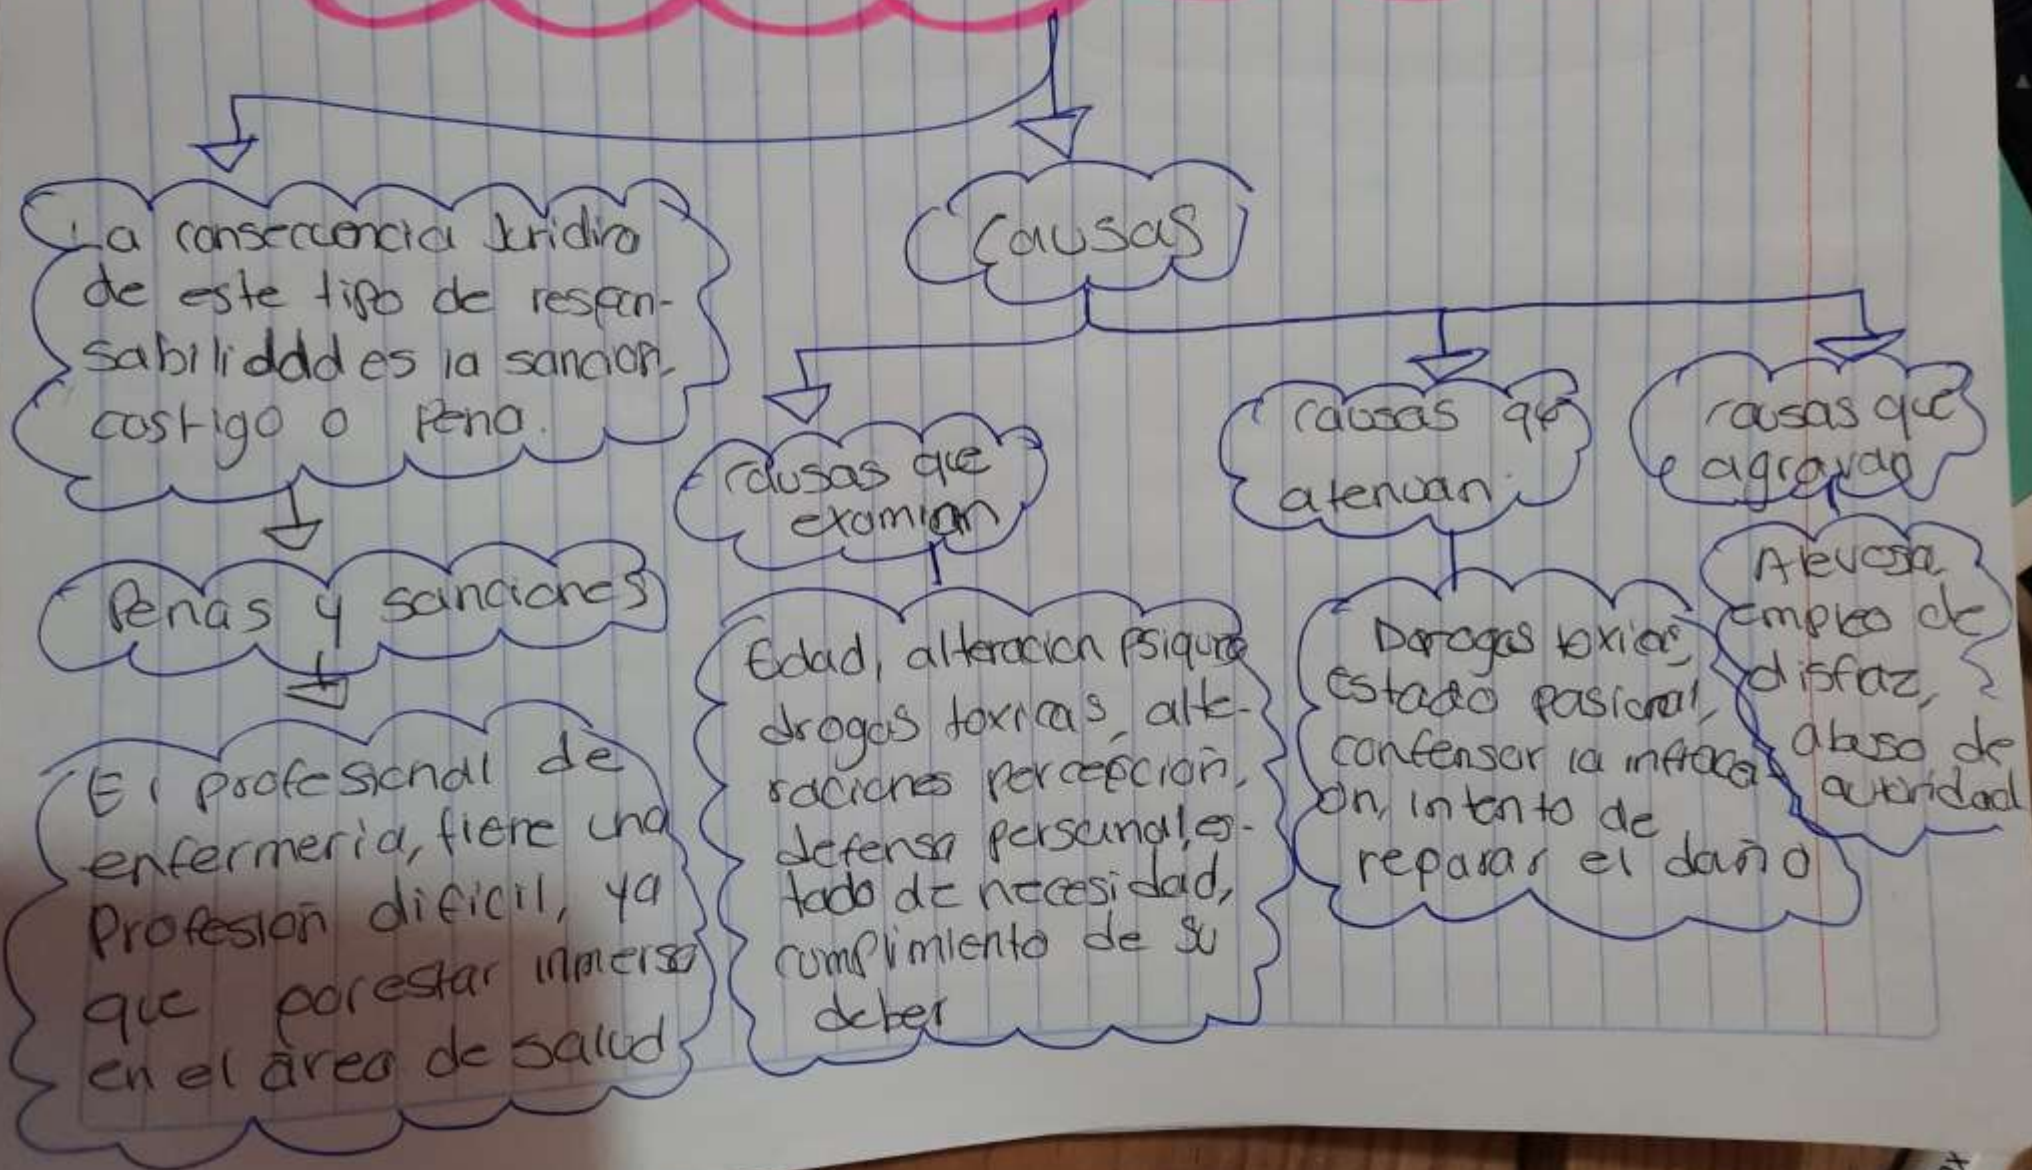 La consecuencia Juridica
de este tipo de respon-
sabilidad es la sancion,
castigo o Pena.
Penas y sanciones
El profesional de
enfermeria, tiene una
Profesion dificil, ya
que por estar inmerso
en el área de salud
Causas
causas que
examinan
Edad, alteracion psiquica
drogas toxicas, alte-
raciones percepcion,
defensa personal, es-
tado de necesidad,
cumplimiento de su
deber
causas que
atenuan
Dorogas toxicas,
estado pasional,
confensar la infracci
on, intento de
reparar el daño
causas que
agravan
Alevosa,
empleo de
disfaz,
abuso de
autoridad